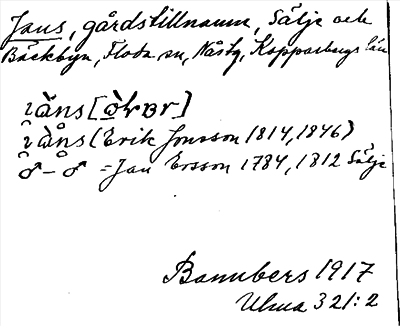 Jans, gårdstillnamn, Sälje och
Bäckbyn, Floda sn, Nåsbg, Kopparbergs län
(Erik Jonsson 1814, 1846)
♂ – ♂ = Jan Ersson 1784, 1812 Sälje
Bannbers 1917
Ulma 321:2